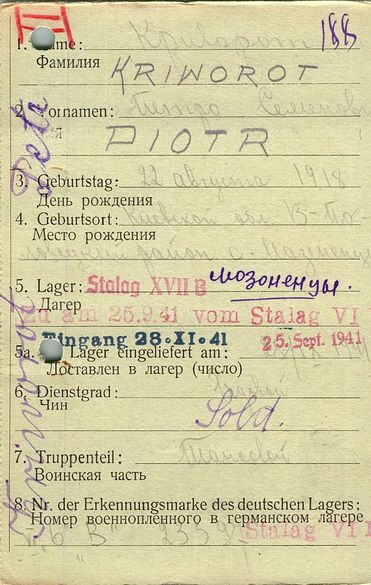 188
1. Name: Криворот
Фамилия
KRIWOROT
2. Vornamen: Петро Семенов
PIOTR
3. Geburtstag: 22 августа 1918
День рождения
4. Geburtsort: Киевская обл.
Место рождения район с.
5. Lager: Stalag XVII B мозоненцы.
Лагер
am 25.9.41 vom Stalag VI
Eingang 28.XI.41 25. Sept. 1941
5a. Lager eingeliefert am:
Доставлен в лагер (число)
6. Dienstgrad:
Чин
Sold.
7. Truppenteil: Танковой
Воинская часть
8. Nr. der Erkennungsmarke des deutschen Lagers:
Номер военнопленного в германском лагере
VI B Stalag VI